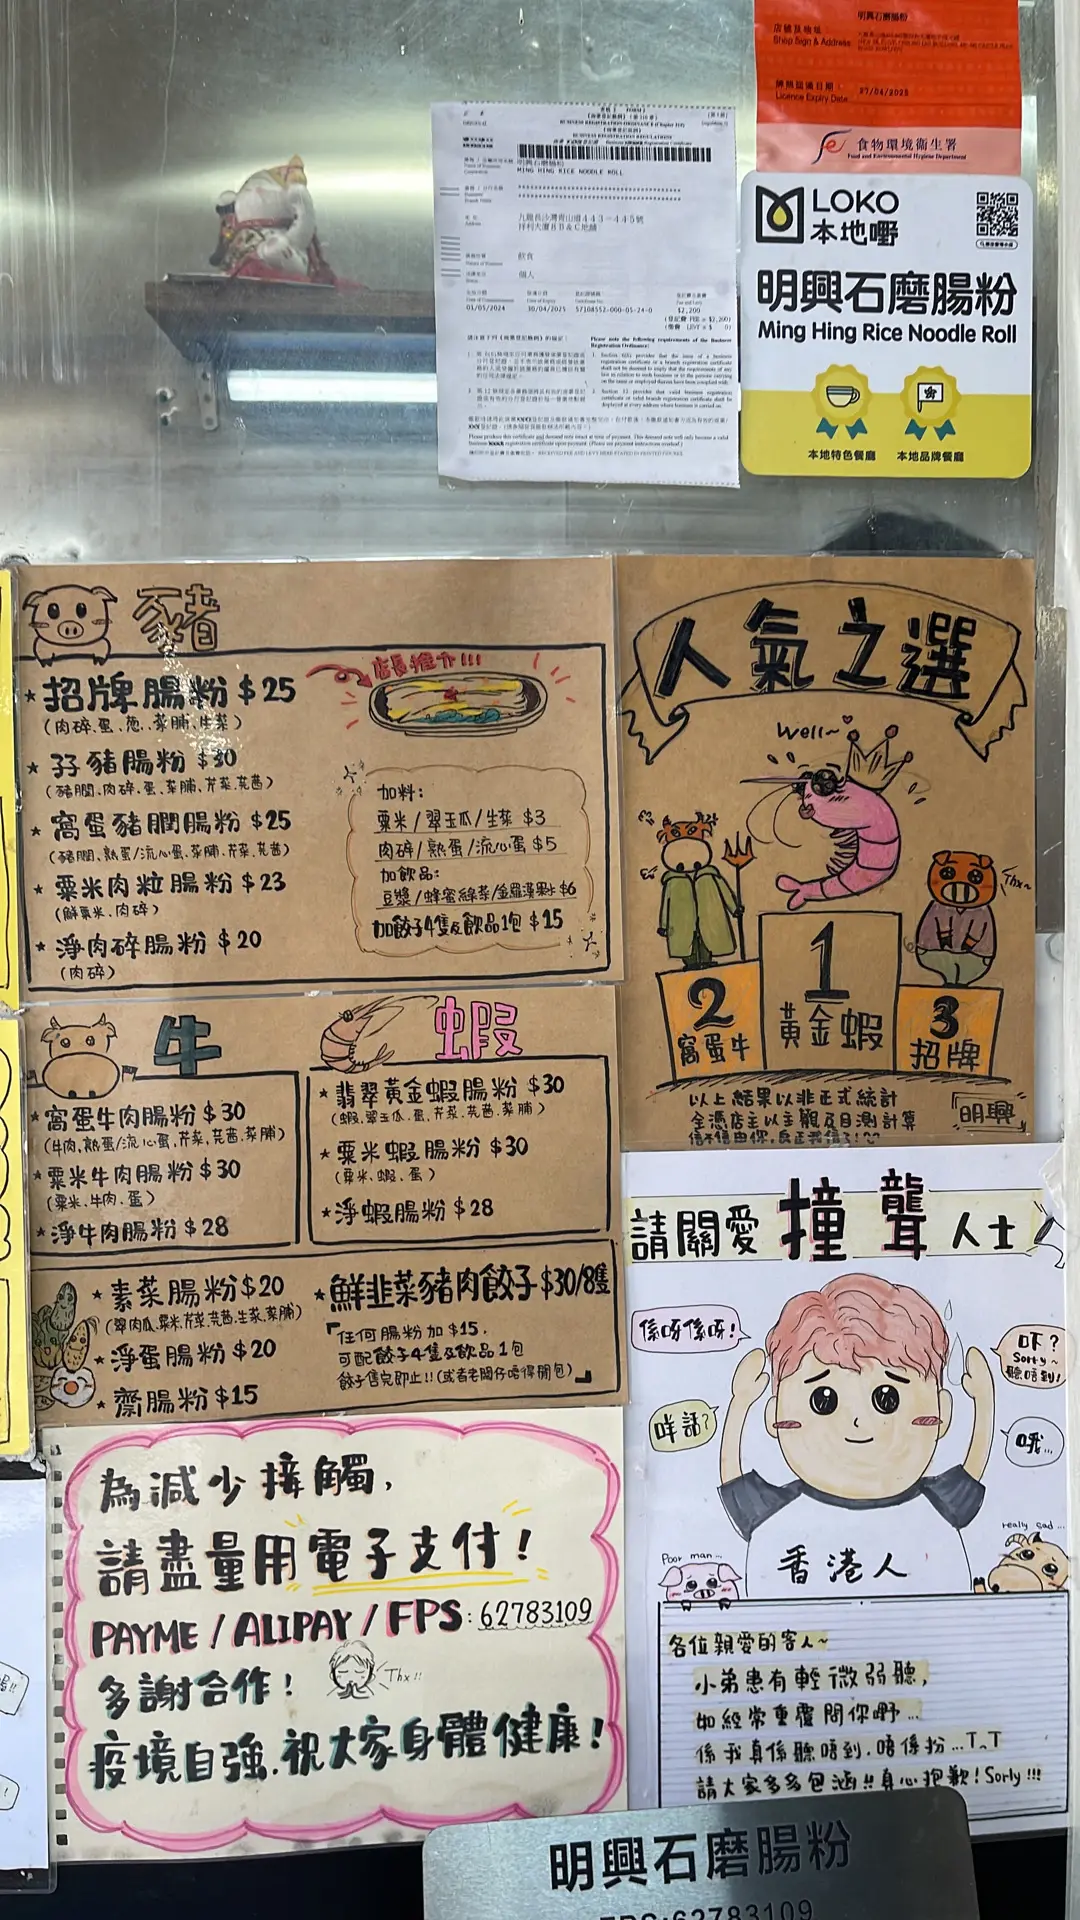 明興石磨腸粉
店號及地址
Shop Sign & Address
牌照屆滿日期
Licence Expiry Date
27/04/2025
食物環境衞生署
Food and Environmental Hygiene Department
MING HING RICE NOODLE ROLL
九龍長沙灣青山道443-445號
祥利大廈B B&C地舖
飲食
個人
03/05/2024
30/04/2025
57108552-000-05-24-0
$2,200
LOKO
本地嘢
明興石磨腸粉
Ming Hing Rice Noodle Roll
本地特色餐廳
本地品牌餐廳
豬
招牌腸粉 $25
(肉碎.蛋.葱.菜脯.生菜)
孖豬腸粉 $30
(豬膶.肉碎.蛋.菜脯.芹菜.芫茜)
窩蛋豬膶腸粉 $25
(豬膶.熟蛋/流心蛋.菜脯.芹菜.芫茜)
粟米肉粒腸粉 $23
(鮮粟米.肉碎)
淨肉碎腸粉 $20
(肉碎)
店長推介!!!
加料:
粟米/翠玉瓜/生菜 $3
肉碎/熟蛋/流心蛋 $5
加飲品:
豆漿/蜂蜜綠茶/金羅漢果水 $6
加餃子4隻及飲品1包 $15
人氣之選
Well~
Thx~
1
黃金蝦
2
窩蛋牛
3
招牌
以上結果以非正式統計
全憑店主以主觀及目測計算
信不信由你,反正我信了!
「明興」
牛
窩蛋牛肉腸粉 $30
(牛肉.熟蛋/流心蛋.芹菜.芫茜.菜脯)
粟米牛肉腸粉 $30
(粟米.牛肉.蛋)
淨牛肉腸粉 $28
蝦
翡翠黃金蝦腸粉 $30
(蝦.翠玉瓜.蛋.芹菜.芫茜.菜脯)
粟米蝦腸粉 $30
(粟米.蝦.蛋)
淨蝦腸粉 $28
素菜腸粉 $20
(翠肉瓜.粟米.芹菜.芫茜.生菜.菜脯)
淨蛋腸粉 $20
齋腸粉 $15
鮮韭菜豬肉餃子 $30/8隻
「任何腸粉加 $15,
可配餃子4隻及飲品1包
餃子售完即止!!(或者老闆仔唔得閒包)」
請關愛撞聾人士
係呀係呀!
咩話?
吓?
Sorry~
聽唔到!
哦...
Poor man...
really sad...
香港人
各位親愛的客人~
小弟患有輕微弱聽,
如經常重覆問你嘢...
係我真係聽唔到,唔係扮...T_T
請大家多多包涵!!真心抱歉!Sorly!!!
為減少接觸,
請盡量用電子支付!
PAYME / ALIPAY / FPS: 62783109
多謝合作!
Thx!!
疫境自強.祝大家身體健康!
明興石磨腸粉
FPS:62783109